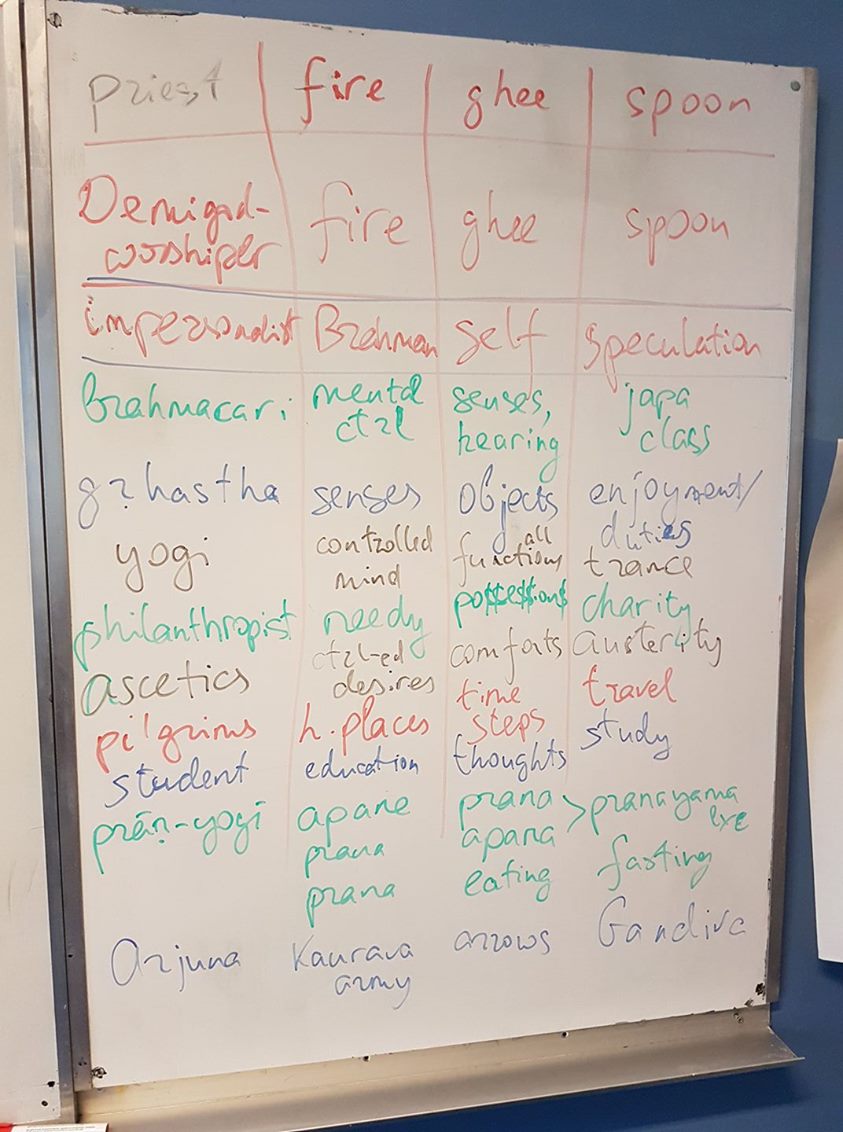 priest fire ghee spoon
Demigod- fire ghee spoon
worshiper
impersonalist Brahman self speculation
Brahmacari mental senses, japa
ctrl hearing class
grhastha senses objects enjoyment/
duties
yogi controlled all trance
mind functions
philanthropist needy possessions charity
ascetics ctrl-ed comforts austerity
desires
pilgrims h. places time travel
steps
student education thoughts study
prāṇ-yogī apane prana > pranayama
prana apana exe
prana eating fasting
Arjuna Kaurava arrows Gandiva
army